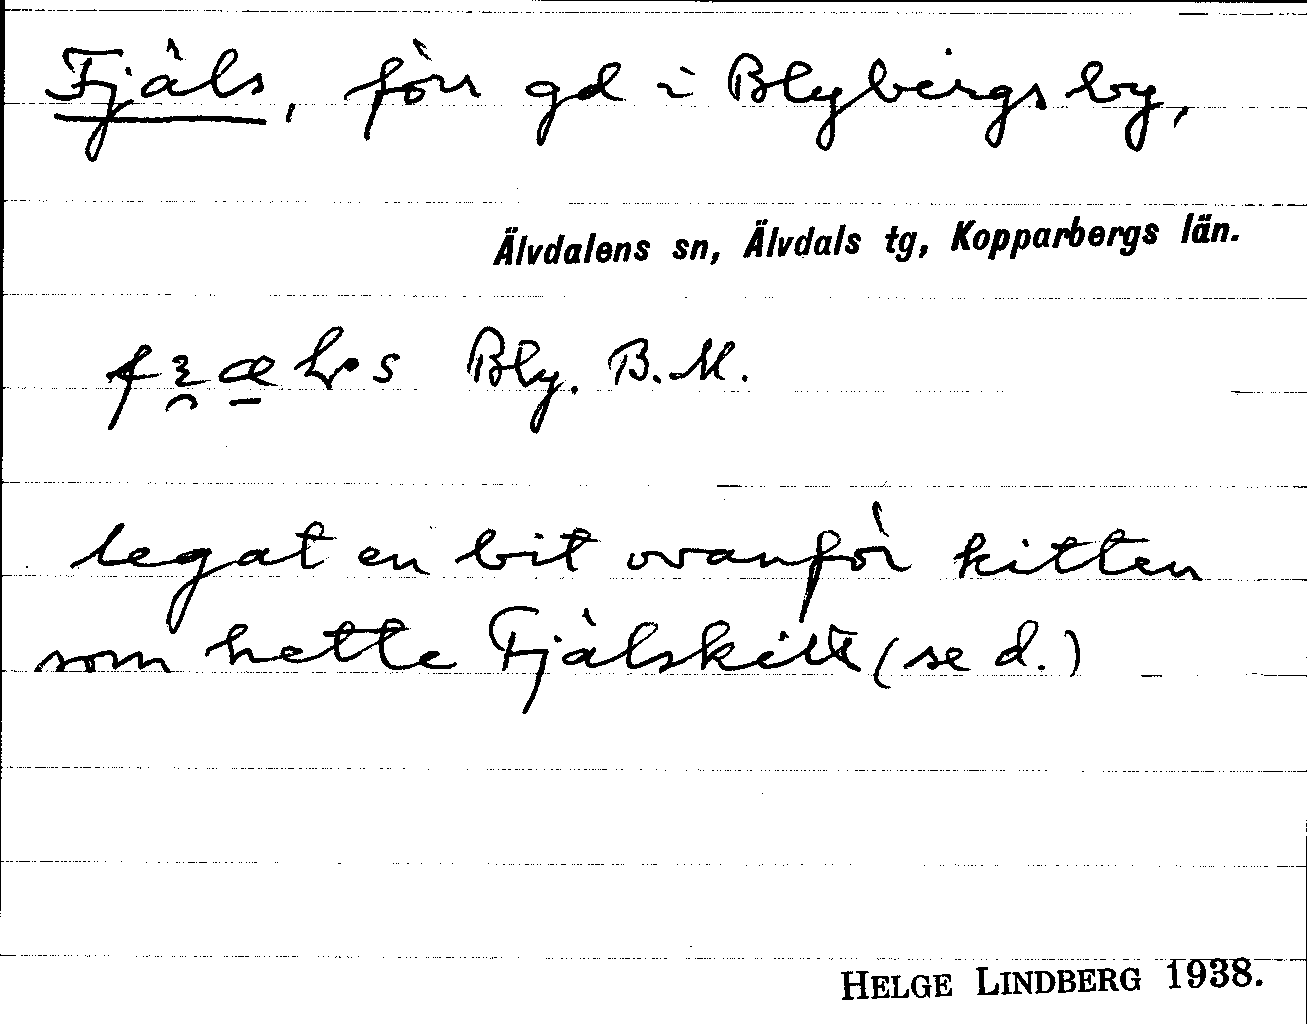 Fjäls, förr gd i Blybergsby,
Älvdalens sn, Älvdals tg, Kopparbergs län.
Bly. B.M.
legat en bit ovanför kitten
som hette Fjälskitt (se d.)
HELGE LINDBERG 1938.